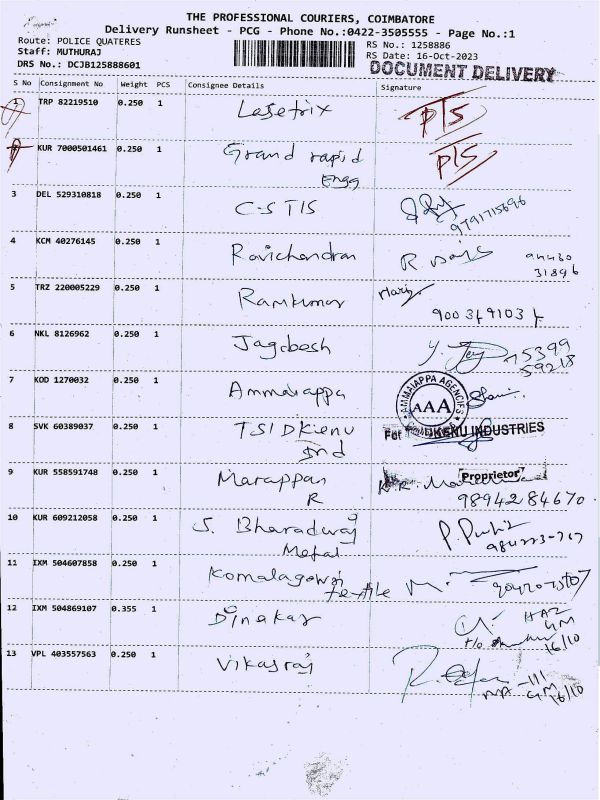 THE PROFESSIONAL COURIERS, COIMBATORE
Delivery Runsheet - PCG - Phone No.:0422-3505555 - Page No.:1
Route: POLICE QUATERES
Staff: MUTHURAJ
DRS No.: DCJB125888601
RS No.: 1258886
RS Date: 16-Oct-2023
DOCUMENT DELIVERY
S No Consignment No Weight PCS Consignee Details Signature
1 TRP 82219510 0.250 1 Lasetrix PTS
KUR 7000501461 0.250 1 Grand rapid PTS
Engg
3 DEL 529310818 0.250 1 C-STIS
9791715696
4 KCM 40276145 0.250 1 Ravichandran R
5 TRZ 220005229 0.250 1 Ramkumar
6 NKL 8126962 0.250 1 Jagdesh
7 KOD 1270032 0.250 1 Ammaiappa
AMMAIAPPA AGENCIES
AAA
8 SVK 60389037 0.250 1 TSI DKienu
Ind
For DKENU INDUSTRIES
Proprietor
9 KUR 558591748 0.250 1 Marappan
R
9894284670
10 KUR 609212058 0.250 1 S. Bharadwaj
Metal
11 IXM 504607858 0.250 1 Komalagowri
textile
12 IXM 504869107 0.355 1 Dinakar
16/10
13 VPL 403557563 0.250 1 Vikasraj
16/10